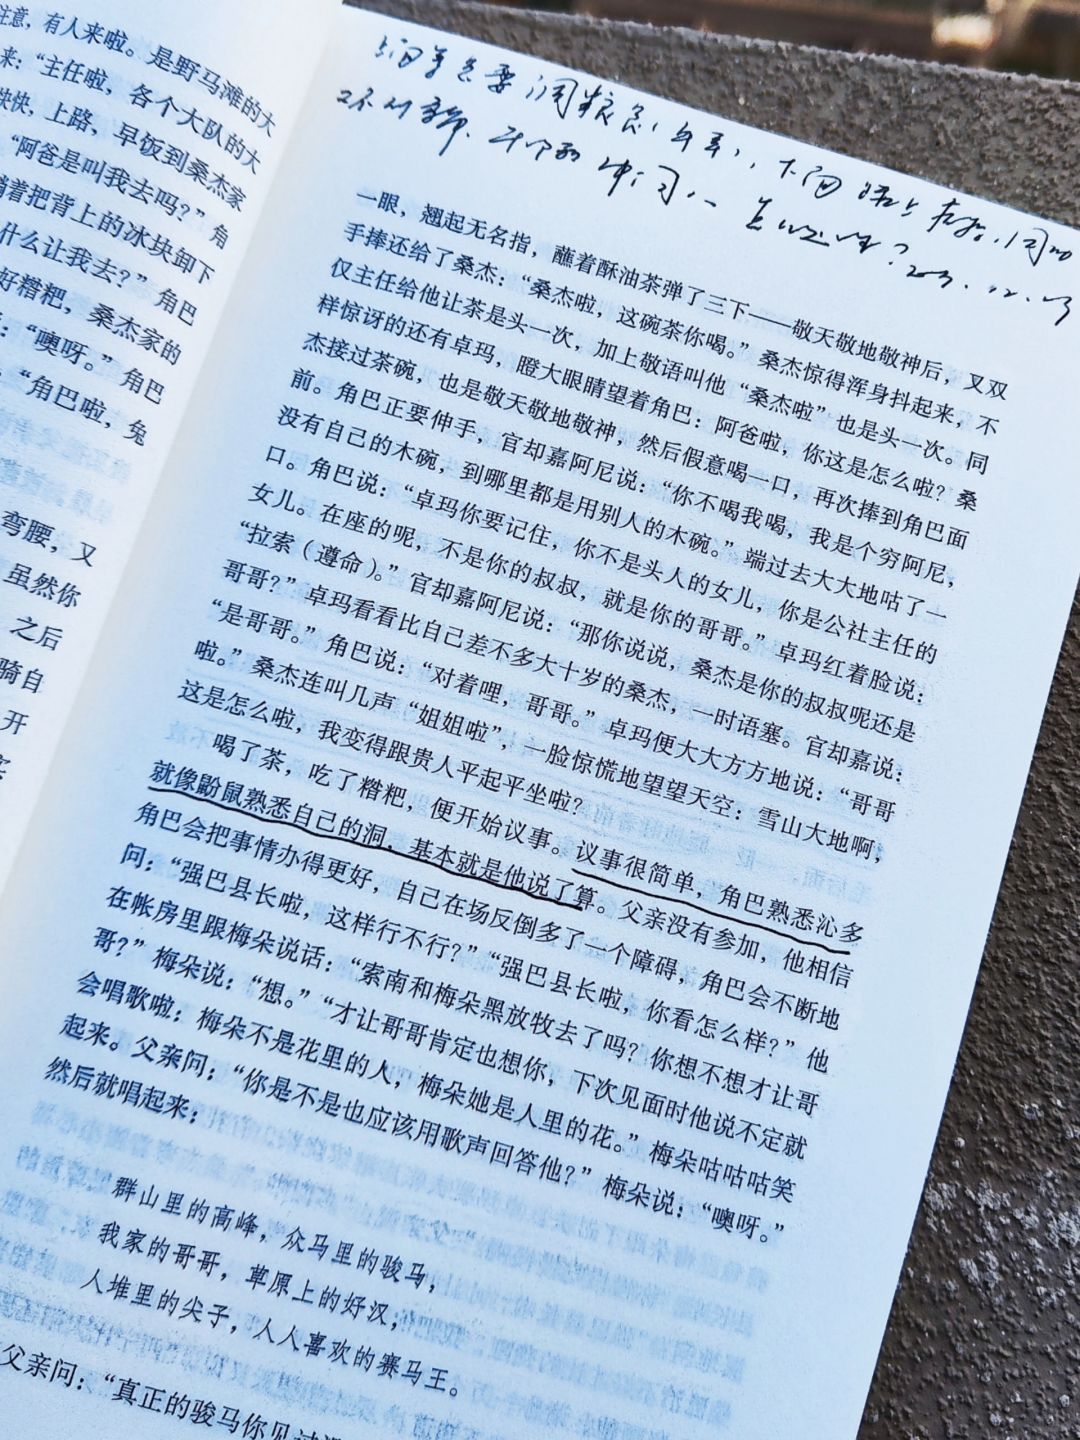 注意，有人来啦。是野马滩的大
来：“主任啦，各个大队的大
快快，上路，早饭到桑杰家
“阿爸是叫我去吗？”角
着把背上的冰块卸下
什么让我去？”角巴
好糌粑，桑杰家的
：“噢呀。”角巴
“角巴啦，兔
弯腰，又
虽然你
之后
骑自
开
一眼，翘起无名指，蘸着酥油茶弹了三下——敬天敬地敬神后，又双
手捧还给了桑杰：“桑杰啦，这碗茶你喝。”桑杰惊得浑身抖起来，不
仅主任给他让茶是头一次，加上敬语叫他“桑杰啦”也是头一次。同
样惊讶的还有卓玛，瞪大眼睛望着角巴：阿爸啦，你这是怎么啦？桑
杰接过茶碗，也是敬天敬地敬神，然后假意喝一口，再次捧到角巴面
前。角巴正要伸手，官却嘉阿尼说：“你不喝我喝，我是个穷阿尼，
没有自己的木碗，到哪里都是用别人的木碗。”端过去大大地咕了一
口。角巴说：“卓玛你要记住，你不是头人的女儿，你是公社主任的
女儿。在座的呢，不是你的叔叔，就是你的哥哥。”卓玛红着脸说：
“拉索（遵命）。”官却嘉阿尼说：“那你说说，桑杰是你的叔叔呢还是
哥哥？”卓玛看看比自己差不多大十岁的桑杰，一时语塞。官却嘉说：
“是哥哥。”角巴说：“对着哩，哥哥。”卓玛便大大方方地说：“哥哥
啦。”桑杰连叫几声“姐姐啦”，一脸惊慌地望望天空：雪山大地啊，
这是怎么啦，我变得跟贵人平起平坐啦？
喝了茶，吃了糌粑，便开始议事。议事很简单，角巴熟悉沁多
就像鼢鼠熟悉自己的洞，基本就是他说了算。父亲没有参加，他相信
角巴会把事情办得更好，自己在场反倒多了一个障碍，角巴会不断地
问：“强巴县长啦，这样行不行？”“强巴县长啦，你看怎么样？”他
在帐房里跟梅朵说话：“索南和梅朵黑放牧去了吗？你想不想才让哥
哥？”梅朵说：“想。”“才让哥哥肯定也想你，下次见面时他说不定就
会唱歌啦：梅朵不是花里的人，梅朵她是人里的花。”梅朵咕咕咕笑
起来。父亲问：“你是不是也应该用歌声回答他？”梅朵说：“噢呀。”
然后就唱起来：
群山里的高峰，众马里的骏马，
我家的哥哥，草原上的好汉，
人堆里的尖子，人人喜欢的赛马王。
父亲问：“真正的骏马你见过